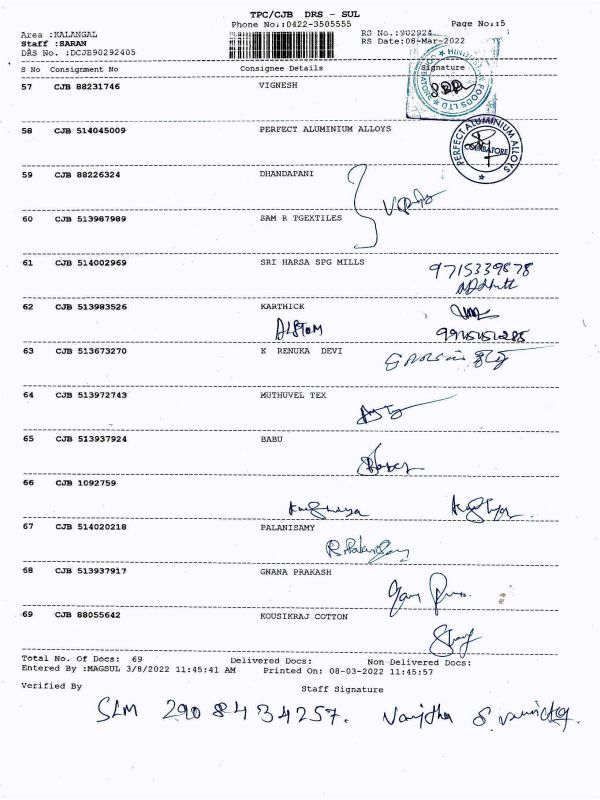 TPC/CJB DRS - SUL
Phone No.:0422-3505555
Page No.:5
Area :KALANGAL
RS No.:902924
Staff :SARAN
RS Date:08-Mar-2022
DRS No. :DCJB90292405
S No Consignment No Consignee Details Signature
57 CJB 88231746 VIGNESH
58 CJB 514045009 PERFECT ALUMINIUM ALLOYS
PERFECT ALUMINIUM ALLOYS
COIMBATORE
59 CJB 88226324 DHANDAPANI
60 CJB 513987989 SAM R TGEXTILES
61 CJB 514002969 SRI HARSA SPG MILLS
9715339878
62 CJB 513983526 KARTHICK
63 CJB 513673270 K RENUKA DEVI
64 CJB 513972743 MUTHUVEL TEX
65 CJB 513937924 BABU
66 CJB 1092759
67 CJB 514020218 PALANISAMY
68 CJB 513937917 GNANA PRAKASH
69 CJB 88055642 KOUSIKRAJ COTTON
Total No. Of Docs: 69 Delivered Docs: Non Delivered Docs:
Entered By :MAGSUL 3/8/2022 11:45:41 AM Printed On: 08-03-2022 11:45:57
Verified By Staff Signature
SLM 290 8434257.